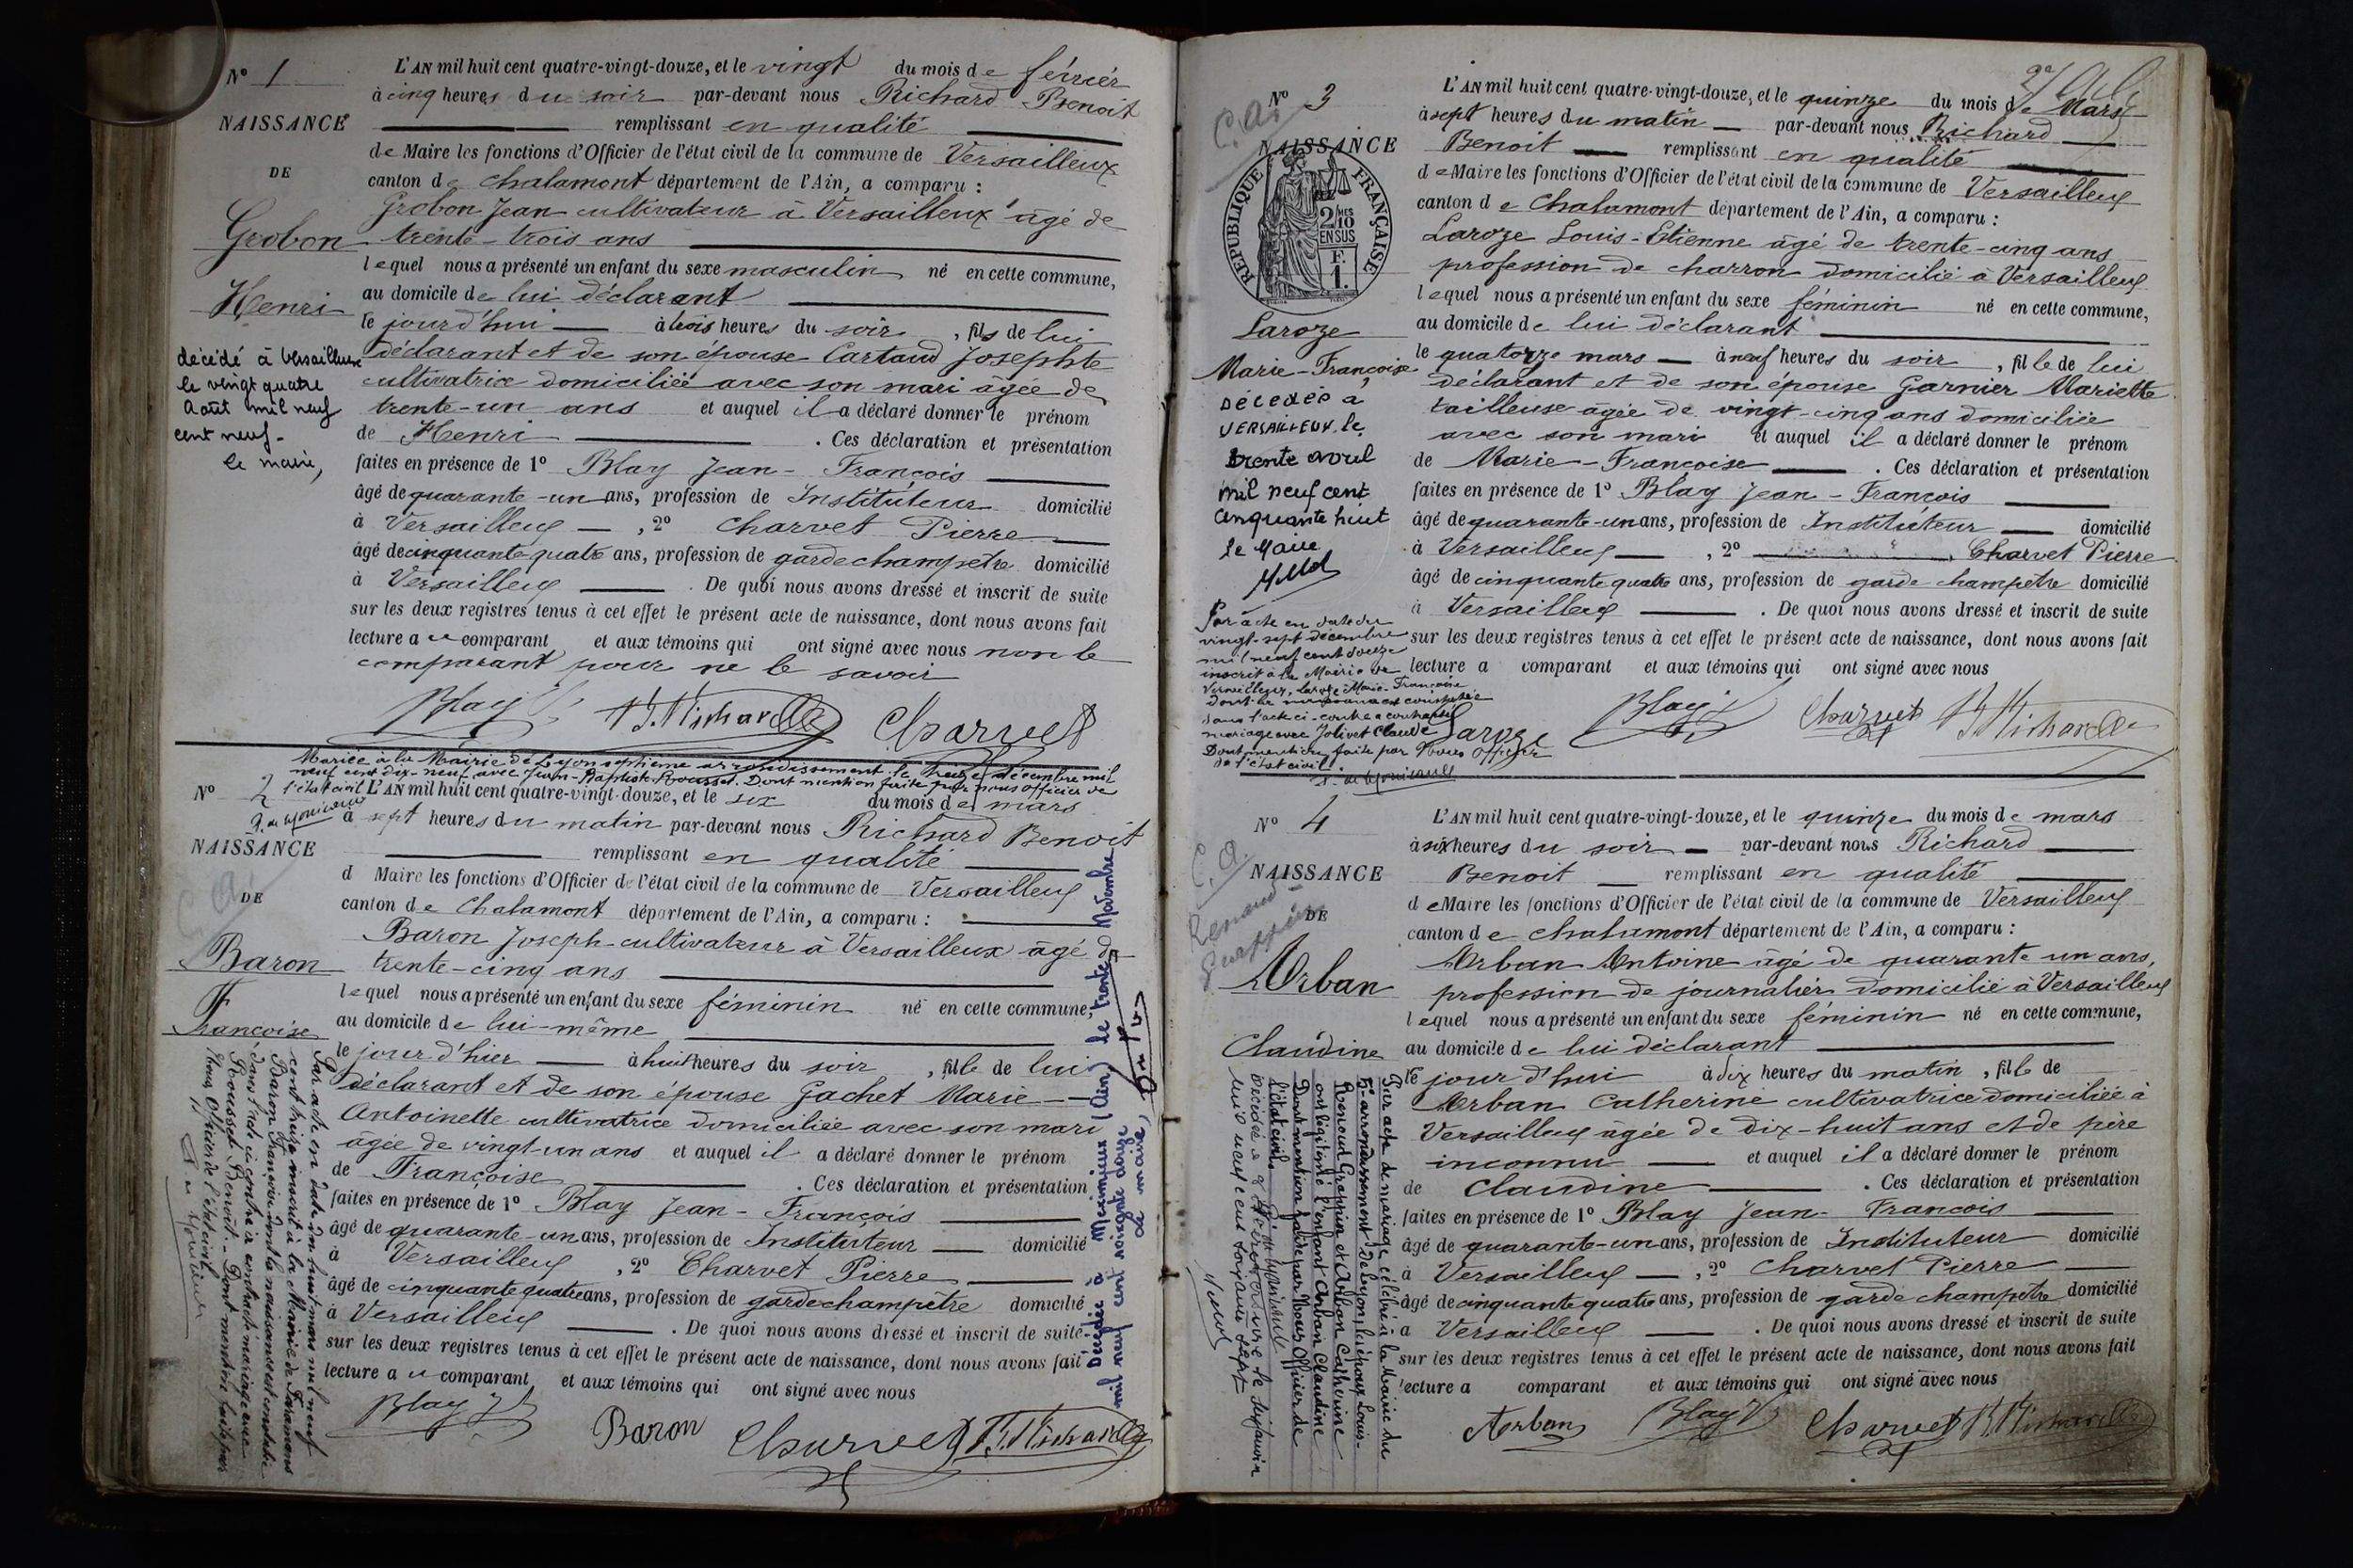 N° 1
NAISSANCE
DE
Grobon
Henri
décédé à Versailleux
le vingt quatre
Août mil neuf
cent neuf-
le maire,
L'AN mil huit cent quatre-vingt-douze, et le vingt du mois de février
à cinq heures du soir par-devant nous Richard Benoit
remplissant en qualité
de Maire les fonctions d'Officier de l'état civil de la commune de Versailleux
canton de Chalamont département de l'Ain, a comparu :
Grobon Jean cultivateur à Versailleux âgé de
trente-trois ans
lequel nous a présenté un enfant du sexe masculin né en cette commune,
au domicile de lui déclarant
le jourd'hui à trois heures du soir, fils de lui
déclarant et de son épouse Cartaud Josephte
cultivatrice domiciliée avec son mari âgée de
trente-un ans et auquel il a déclaré donner le prénom
de Henri . Ces déclaration et présentation
faites en présence de 1° Blay Jean-François
âgé de quarante-un ans, profession de Instituteur domicilié
à Versailleux , 2° Charvet Pierre
âgé de cinquante quatre ans, profession de garde champêtre domicilié
à Versailleux . De quoi nous avons dressé et inscrit de suite
sur les deux registres tenus à cet effet le présent acte de naissance, dont nous avons fait
lecture au comparant et aux témoins qui ont signé avec nous non le
comparant pour ne le savoir
Blay Charvet
Mariée à la Mairie de Lyon septième arrondissement le treize décembre mil
neuf cent dix-neuf avec Jean-Baptiste Rousset. Dont mention faite par nous officier de
l'état civil
N° 2
NAISSANCE
C. A.
DE
Baron
Françoise
Par acte en date du huit mars mil neuf
cent treize inscrit à la Mairie de Faramans
Baron Françoise dont la naissance est constatée
dans l'acte ci-contre a contracté mariage avec
Rousset Benoît. - Dont mention faite par
Nous Officier de l'état civil
L'AN mil huit cent quatre-vingt-douze, et le six du mois de mars
à sept heures du matin par-devant nous Richard Benoit
remplissant en qualité
d Maire les fonctions d'Officier de l'état civil de la commune de Versailleux
canton de Chalamont département de l'Ain, a comparu :
Baron Joseph cultivateur à Versailleux âgé de
trente-cinq ans
lequel nous a présenté un enfant du sexe féminin né en cette commune,
au domicile de lui-même
le jour d'hier à huit heures du soir, fille de lui
déclarant et de son épouse Gachet Marie-
Antoinette cultivatrice domiciliée avec son mari
âgée de vingt-un ans et auquel il a déclaré donner le prénom
de Françoise . Ces déclaration et présentation
faites en présence de 1° Blay Jean-François
âgé de quarante-un ans, profession de Instituteur domicilié
à Versailleux , 2° Charvet Pierre
âgé de cinquante quatre ans, profession de garde champêtre domicilié
à Versailleux . De quoi nous avons dressé et inscrit de suite
sur les deux registres tenus à cet effet le présent acte de naissance, dont nous avons fait
lecture au comparant et aux témoins qui ont signé avec nous
Blay Baron Charvet
Décédée à Meximieux (Ain) le trente Novembre
mil neuf cent soixante douze
Le maire,
N° 3
C. A.
NAISSANCE
RÉPUBLIQUE FRANÇAISE
2 10MES
EN SUS
F.
1.
Laroze
Marie-Françoise
Décédée à
VERSAILLEUX le
trente avril
mil neuf cent
cinquante huit
le Maire
Par acte en date du
vingt-sept décembre
mil neuf cent douze
inscrit à la Mairie de
Versailleux, Laroze Marie-Françoise
dont la naissance est constatée
dans l'acte ci-contre a contracté
mariage avec Jolivet Claude
Dont mention faite par Nous Officier
de l'état civil
L'AN mil huit cent quatre-vingt-douze, et le quinze du mois de Mars
à sept heures du matin par-devant nous Richard
Benoit remplissant en qualité
de Maire les fonctions d'Officier de l'état civil de la commune de Versailleux
canton de Chalamont département de l'Ain, a comparu :
Laroze Louis-Etienne âgé de trente-cinq ans
profession de charron domicilié à Versailleux
lequel nous a présenté un enfant du sexe féminin né en cette commune,
au domicile de lui déclarant
le quatorze mars à neuf heures du soir, fille de lui
déclarant et de son épouse Garnier Mariette
tailleuse âgée de vingt-cinq ans domiciliée
avec son mari et auquel il a déclaré donner le prénom
de Marie-Françoise . Ces déclaration et présentation
faites en présence de 1° Blay Jean-François
âgé de quarante-un ans, profession de Instituteur domicilié
à Versailleux , 2° Charvet Pierre
âgé de cinquante quatre ans, profession de garde champêtre domicilié
à Versailleux . De quoi nous avons dressé et inscrit de suite
sur les deux registres tenus à cet effet le présent acte de naissance, dont nous avons fait
lecture a comparant et aux témoins qui ont signé avec nous
Laroze Blay Charvet
N° 4
C. A.
NAISSANCE
Renaud
DE
Arban
Claudine
Par acte de mariage célébré à la Mairie du
5e arrondissement de Lyon, les époux Louis-
Renoud Grappin et Arban Catherine
ont légitimé l'enfant Arban Claudine
Dont mention faite par Nous Officier de
l'état civil
L'AN mil huit cent quatre-vingt-douze, et le quinze du mois de mars
à six heures du soir par-devant nous Richard
Benoit remplissant en qualité
de Maire les fonctions d'Officier de l'état civil de la commune de Versailleux
canton de Chalamont département de l'Ain, a comparu :
Arban Antoine âgé de quarante un ans,
profession de journalier domicilié à Versailleux
lequel nous a présenté un enfant du sexe féminin né en cette commune,
au domicile de lui déclarant
le jour d'hui à dix heures du matin, fille de
Arban Catherine cultivatrice domiciliée à
Versailleux âgée de dix-huit ans et de père
inconnu et auquel il a déclaré donner le prénom
de Claudine . Ces déclaration et présentation
faites en présence de 1° Blay Jean-François
âgé de quarante-un ans, profession de Instituteur domicilié
à Versailleux , 2° Charvet Pierre
âgé de cinquante quatre ans, profession de garde champêtre domicilié
à Versailleux . De quoi nous avons dressé et inscrit de suite
sur les deux registres tenus à cet effet le présent acte de naissance, dont nous avons fait
lecture a comparant et aux témoins qui ont signé avec nous
Arban Blay Charvet